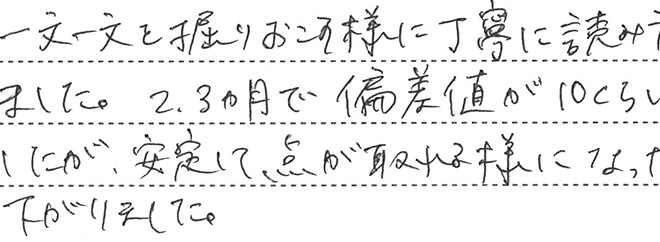 一文一文を掘りおこす様に丁寧に読み
ました。2.3カ月で偏差値が10くらい
したが、安定して、点が取れる様になっ
下がりました。